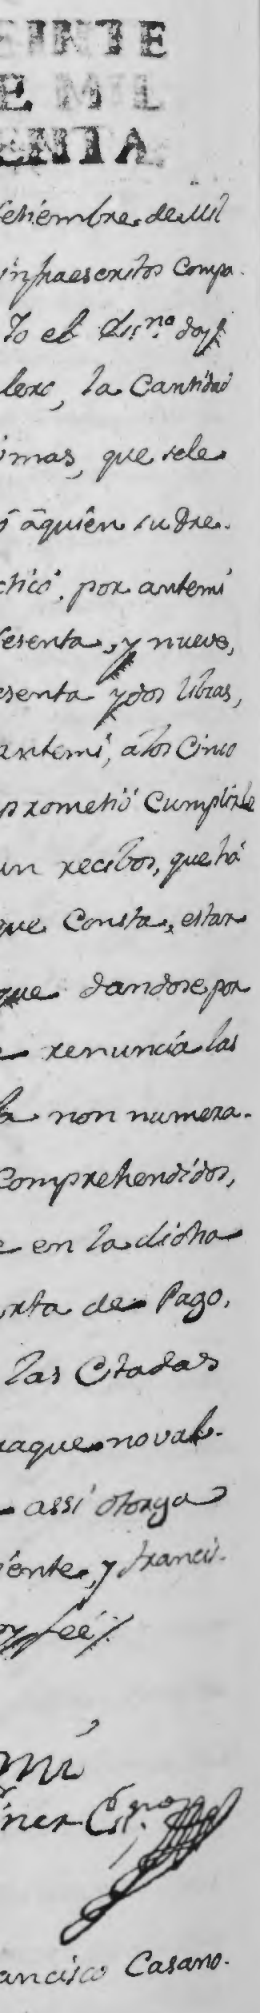 EINTE
E MIL
ENTA
Setiembre, de Mil
infraescritos Compa-
Yo el Ess.no doy f
lero, la Cantidad
imas, que sele
ó âquien su Dre.
ctico, por antemi
sesenta, y nueve,
esenta y dos libras,
antemi, â los Cinco
prometió Cumplirle
un recibos, que há
que Consta, estar
que dandose por
e renuncia las
la non numera-
Comprehendidos,
e en la dicha
arta de Pago,
las Citadas
raque no val-
assi otorga
iente, y Franci-
oy feé
mi
iner Es.no
ancisco Casano-